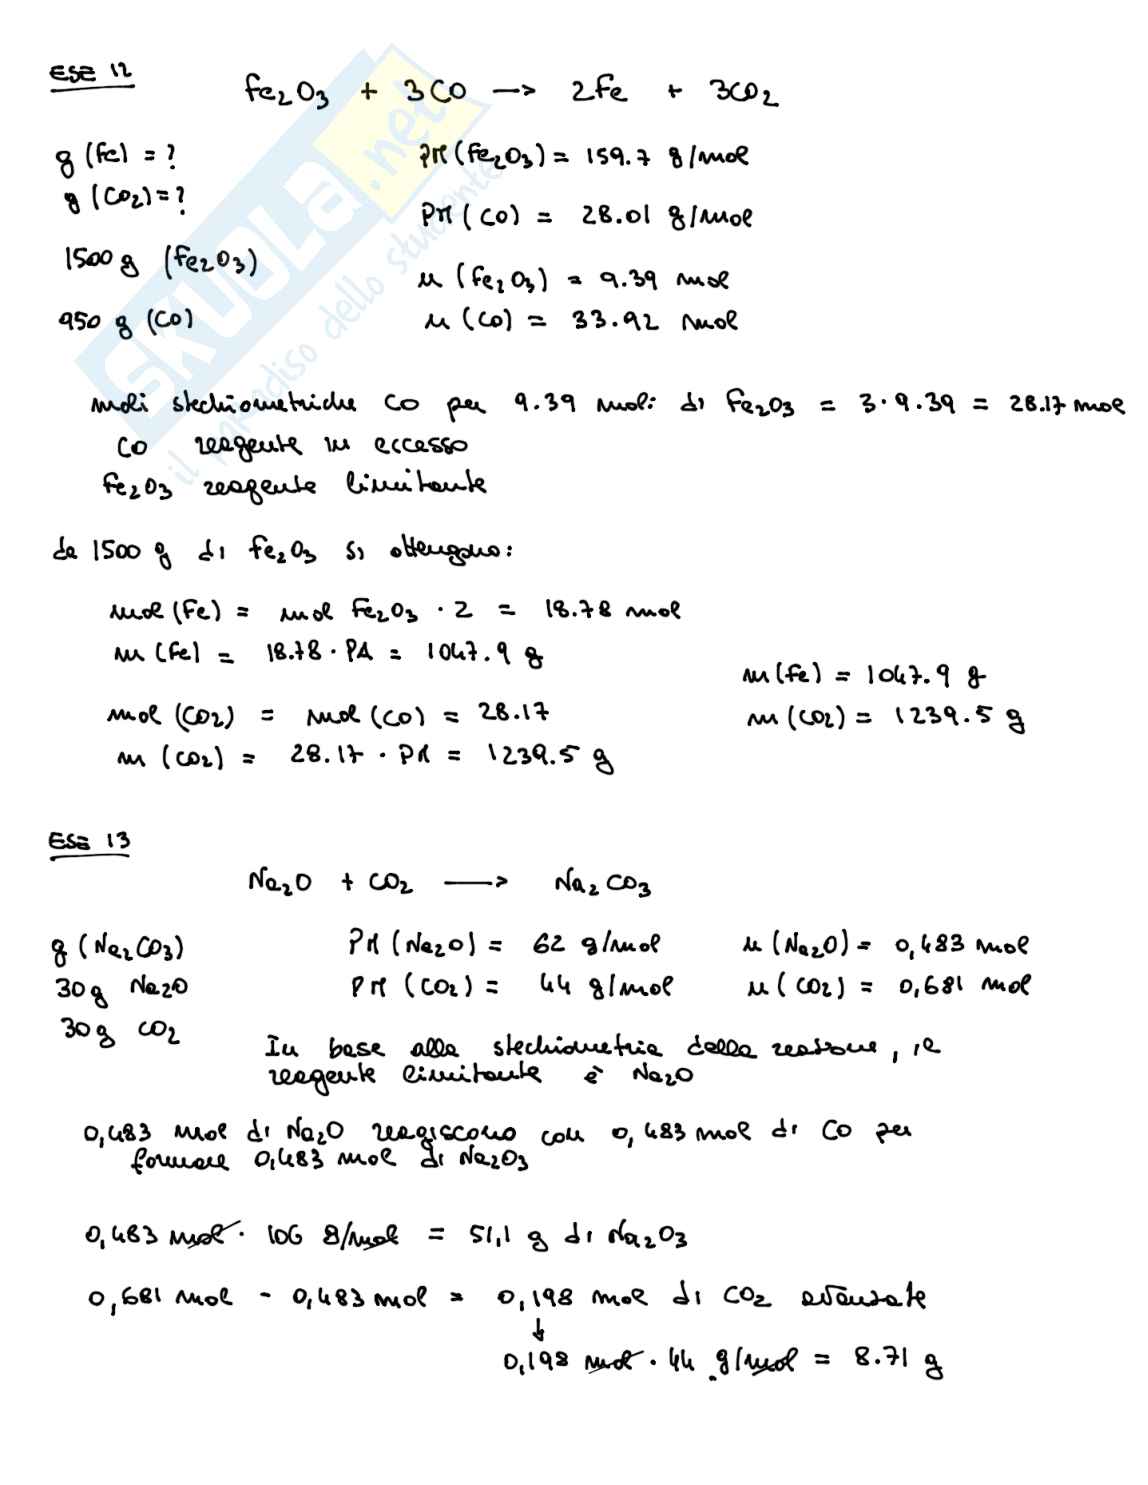 ESE 12
Fe2O3 + 3CO → 2Fe + 3CO2
g (Fe) = ?
g (CO2) = ?
1500 g (Fe2O3)
950 g (CO)
PM (Fe2O3) = 159.7 g/mol
PM (CO) = 28.01 g/mol
n (Fe2O3) = 9.39 mol
n (CO) = 33.92 mol
SKUOLA.net
il paradiso dello studente
moli stechiometriche CO per 9.39 moli di Fe2O3 = 3·9.39 = 28.17 mol
CO reagente in eccesso
Fe2O3 reagente limitante
da 1500 g di Fe2O3 si ottengono:
mol (Fe) = mol Fe2O3 · 2 = 18.78 mol
m (Fe) = 18.78 · PA = 1047.9 g
mol (CO2) = mol (CO) = 28.17
m (CO2) = 28.17 · PM = 1239.5 g
m (Fe) = 1047.9 g
m (CO2) = 1239.5 g
ESE 13
Na2O + CO2 → Na2CO3
g (Na2CO3)
30g Na2O
30g CO2
PM (Na2O) = 62 g/mol
PM (CO2) = 44 g/mol
n (Na2O) = 0,483 mol
n (CO2) = 0,681 mol
In base alla stechiometria della reazione, il
reagente limitante è Na2O
0,483 mol di Na2O reagiscono con 0,483 mol di CO per
formare 0,483 mol di Na2O3
0,483 mol · 106 g/mol = 51,1 g di Na2O3
0,681 mol - 0,483 mol = 0,198 mol di CO2 avanzate
↓
0,198 mol · 44 g/mol = 8.71 g